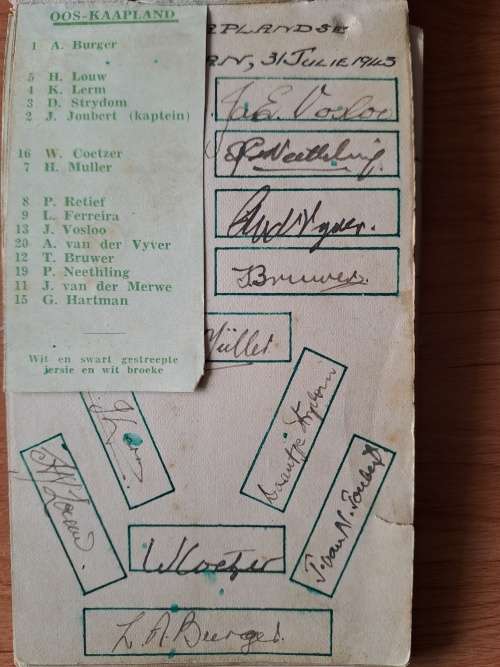 OOS-KAAPLAND
1 A. Burger
5 H. Louw
4 K. Lerm
3 D. Strydom
2 J. Joubert (kaptein)
16 W. Coetzer
7 H. Muller
8 P. Retief
9 L. Ferreira
13 J. Vosloo
20 A. van der Vyver
12 T. Bruwer
19 P. Neethling
11 J. van der Merwe
15 G. Hartman
Wit en swart gestreepte
jersie en wit broeke
RPLANDSE
N, 31 JULIE 1943
J. E. Vosloo
P. Neethling.
TBruwer.
Müller
WCoetzer